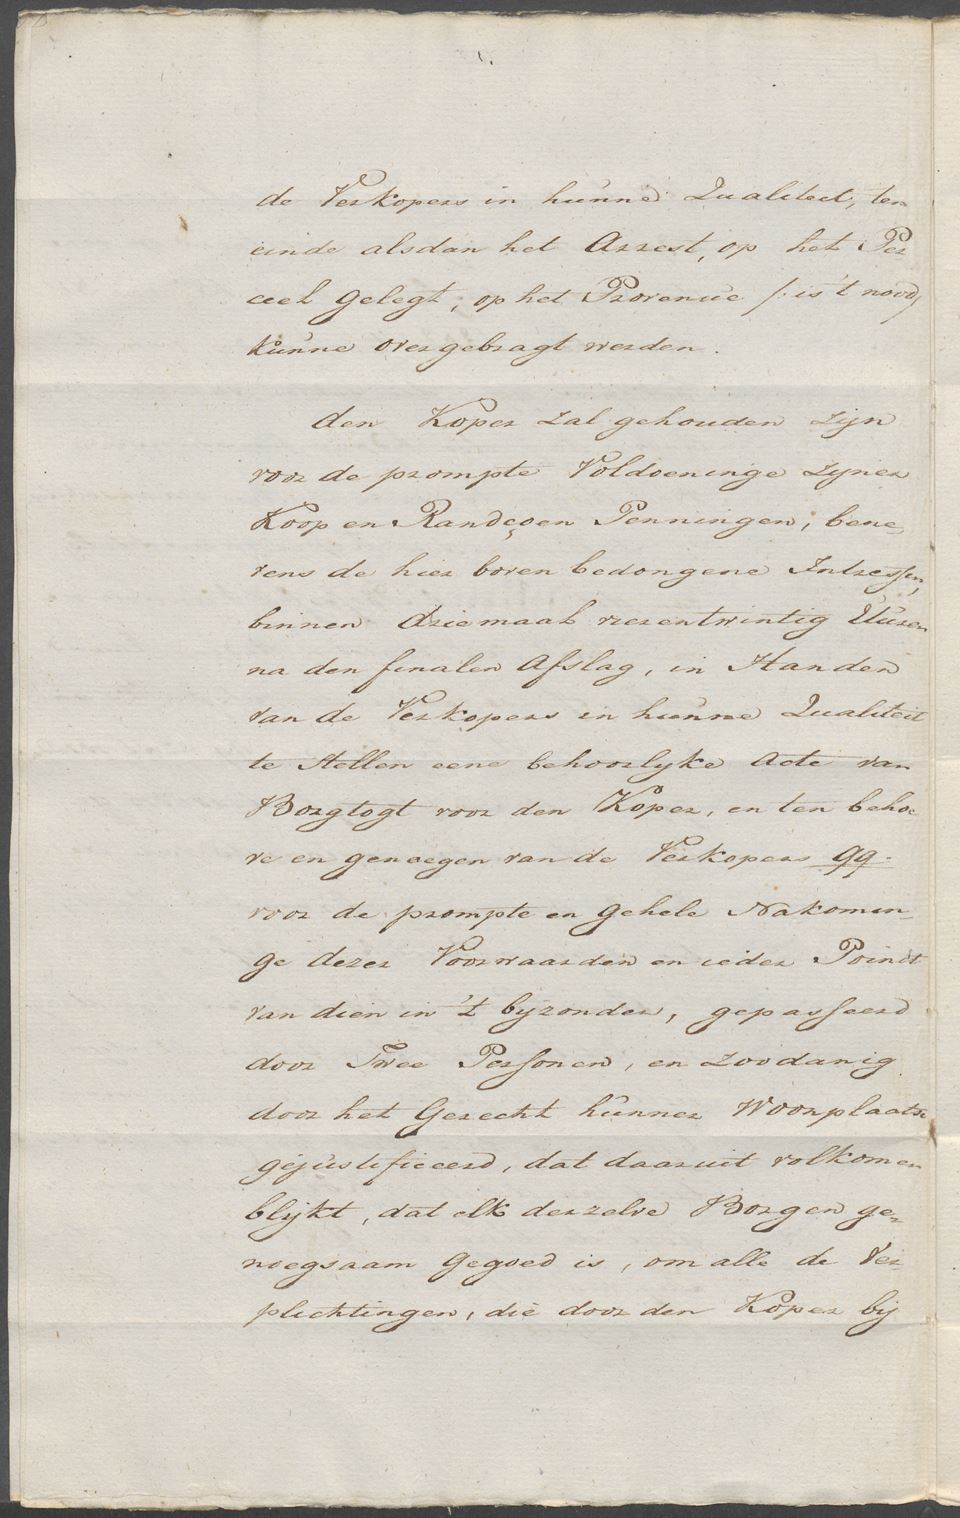 de Verkopers in hunne Qualiteit, ten
einde alsdan het Arrest, op het Per
ceel gelegt, op het Provenue /: is 't nood/
kunne overgebragt werden.
den Koper zal gehouden zijn
voor de prompte Voldoeninge zijner
Koop en Randçoen Penningen, bene,
vens de hier boven bedongene Intressen,
binnen driemaal vierentwintig Uuren
na den finalen Afslag, in Handen
van de Verkopers in hunne Qualiteit
te stellen eene behoorlyke Acte van
Borgtogt voor den Koper, en ten behoe
ve en genoegen van de Verkopers qq.
voor de prompte en gehele Nakomin-
ge dezer Voorwaarden en ieder Poinct
van dien in 't byzonder, gepasseerd
door Twee Persoonen, en zoodanig
door het Gerecht hunner Woonplaatse
gejustificeerd, dat daaruit volkomen
blijkt, dat elk derzelve Borgen ge-
noegsaam gegoed is, om alle de Ver-
plichtingen, die door den Koper bij